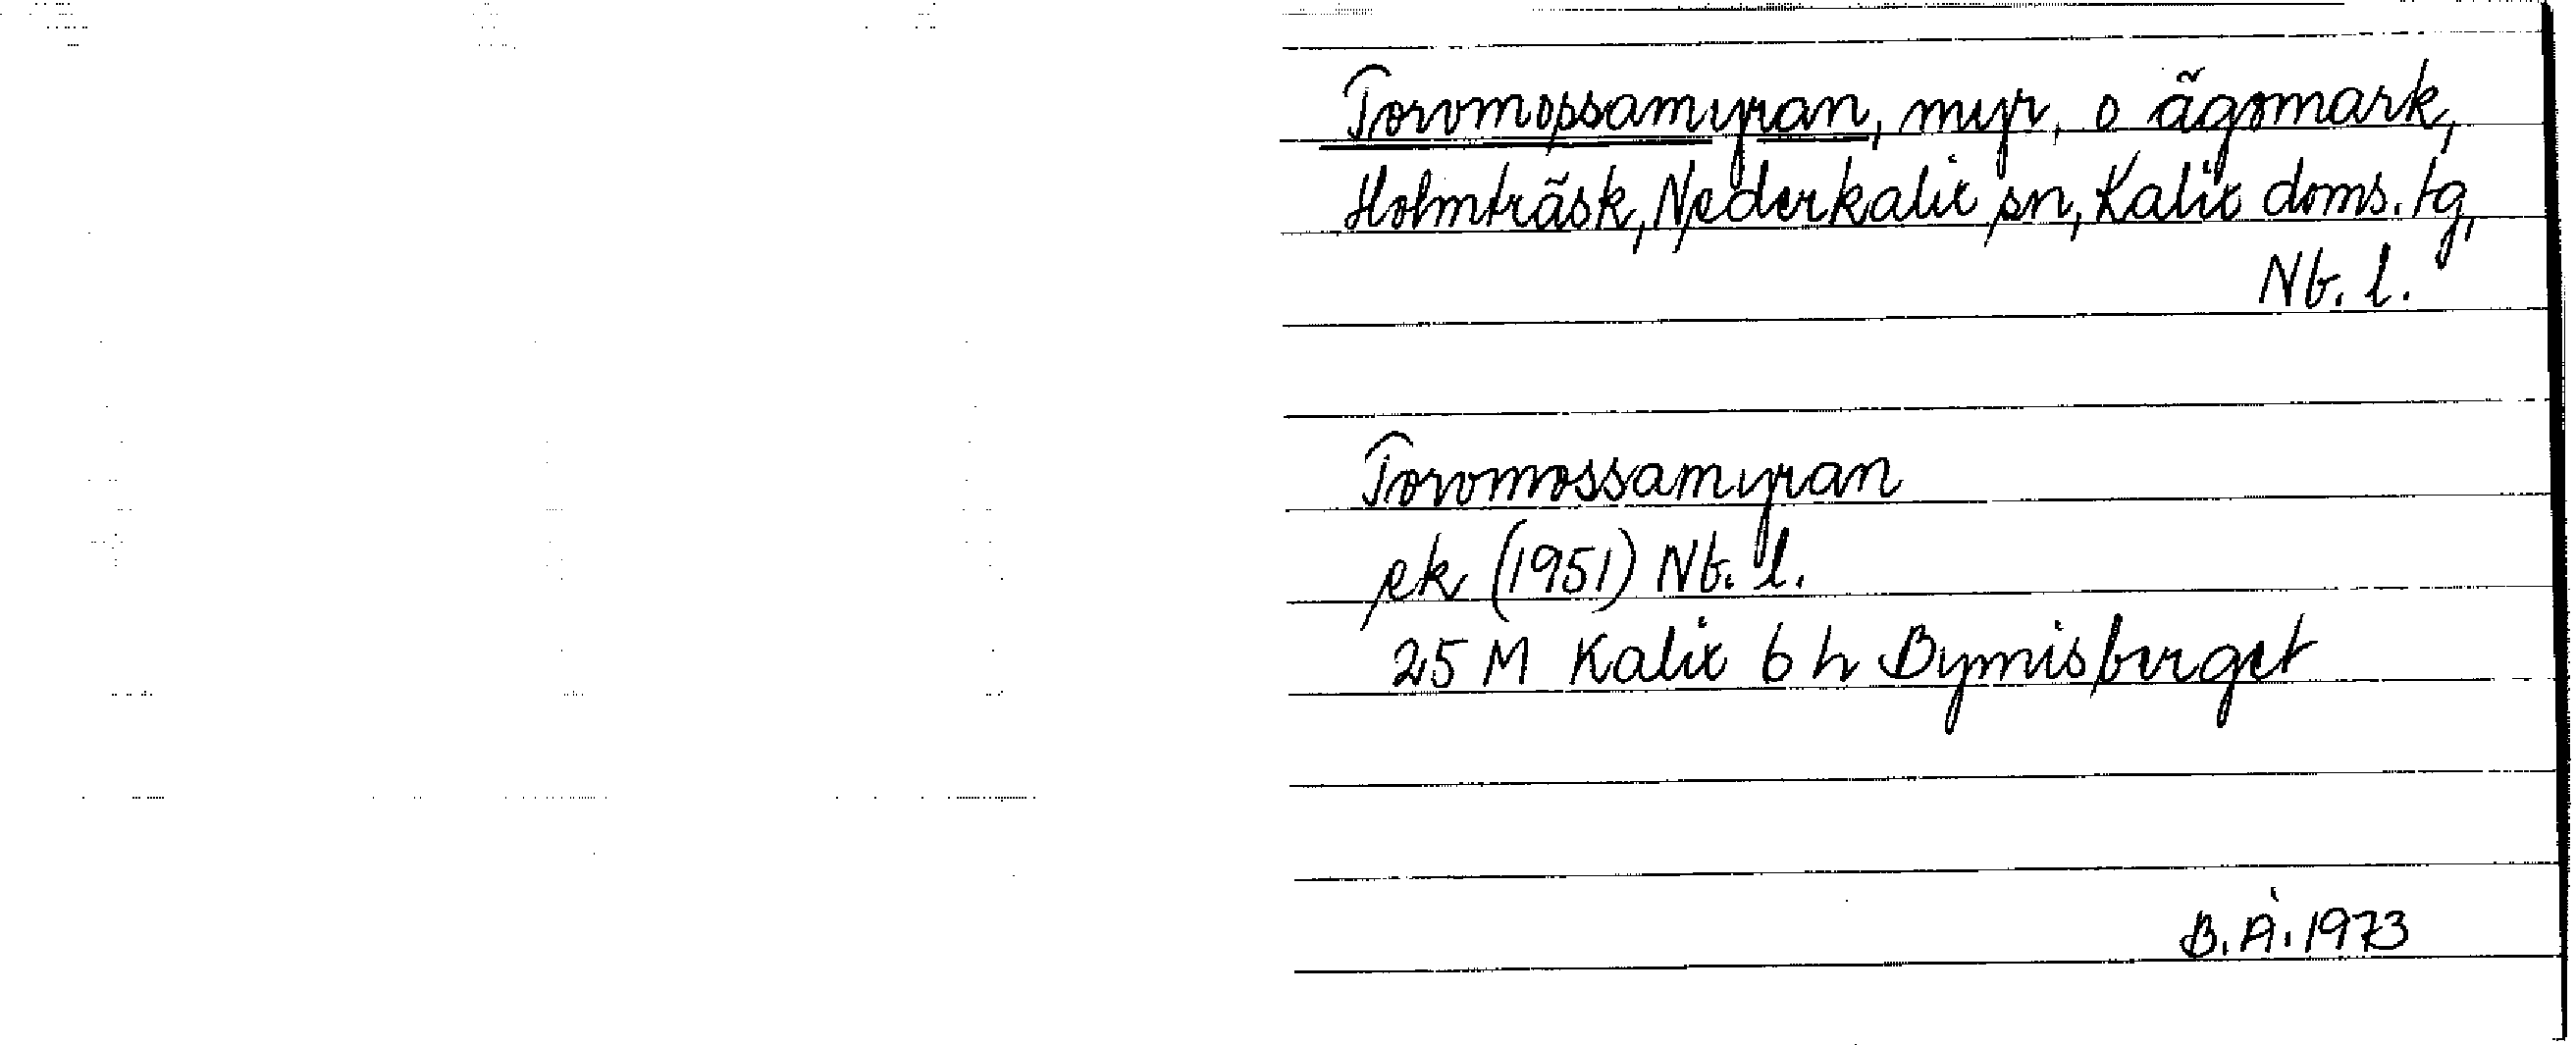 Torvmossamyran, myr, o ägomark,
Holmträsk, Nederkalix sn, Kalix doms. tg,
Nb. l.
Torvmossamyran
ek (1951) Nb. l.
25 M Kalix 6 h Bymisberget
B. Å. 1973